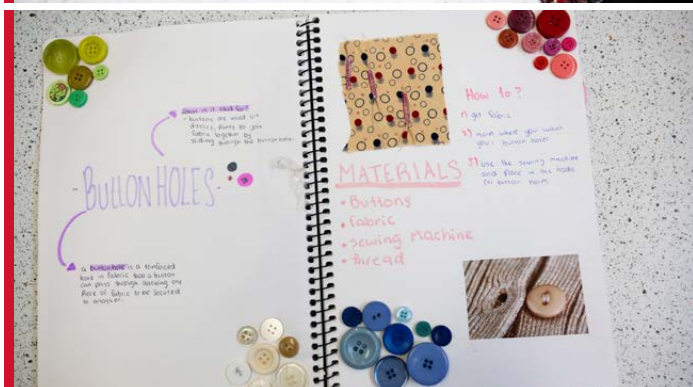 How is it used for?
- buttons are used on
to join
fabric together by
sliding through the button hole.
- BUTTON HOLES -
a buttonhole is a reinforced
hole in fabric that a button
can pass through allowing one
piece of fabric to be secured
to another.
MATERIALS
• Buttons
• fabric
• sewing machine
• thread
How to?
1) get fabric
2) mark where you want
your button holes
3) use the sewing machine
and place in the
for button holes